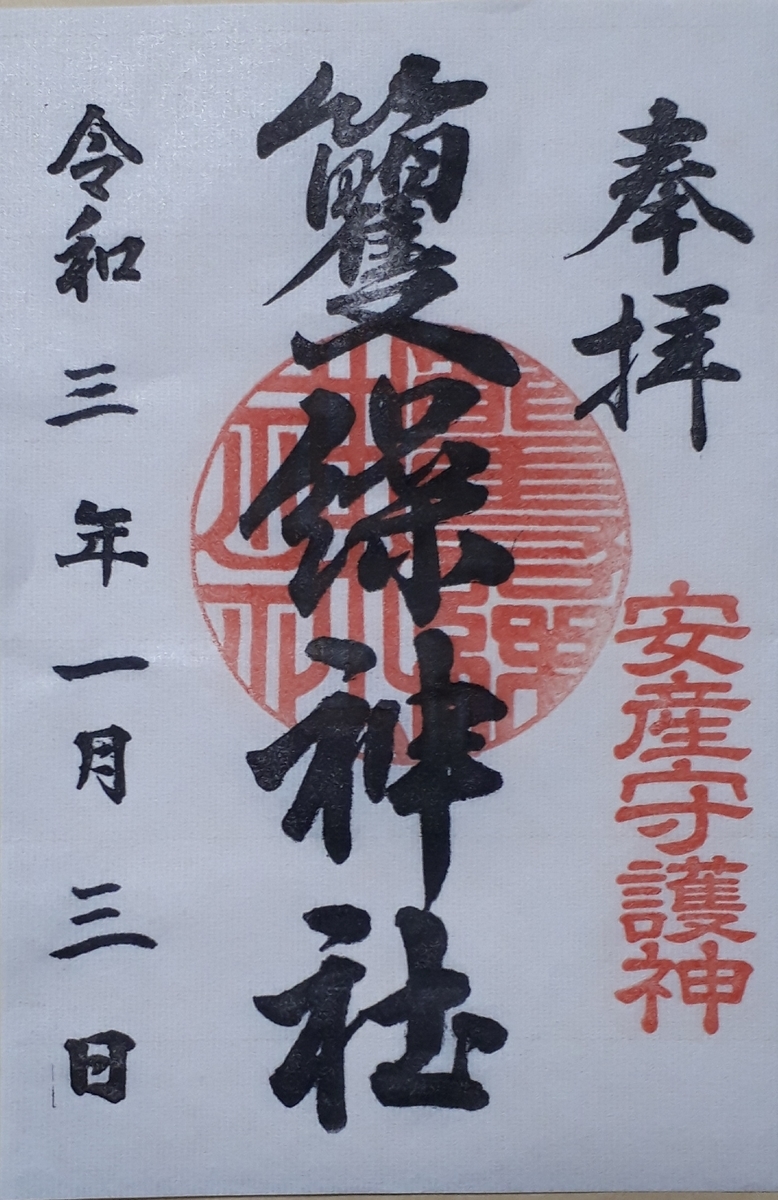 奉拝
安産守護神
籰繰神社
令和三年一月三日